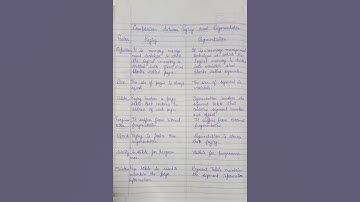 Comparison between Paging and Segmentation
Paging Segmentation
Definition It is memory management technique in which the logical memory is divided into fixed sized blocks called pages. It is memory management technique in which the logical memory is divided into variable sized blocks called segment.
Size The size of pages is always equal. The size of segment is variable.
Table Paging involves a page table that contains the address of each page. Segmentation involves the segment table that contains segment number and offset.
It suffers from internal fragmentation. It suffers from external fragmentation.
Speed Paging is faster than segmentation. Segmentation is slower than paging.
Suitable for Suitable for programmer
Page table is used to maintain the page information. Segment table maintains the segment information.